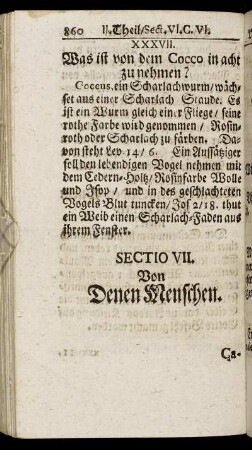 860 II. Theil/Sect. VI. C. VI.
XXXVII.
Was ist von dem Cocco in acht
zu nehmen?
Coccus, ein Scharlachwurm/wäch-
set aus einer Scharlach Staude. Es
ist ein Wurm gleich einer Fliege/ seine
rothe Farbe wird genommen/ Rosin-
roth oder Scharlach zu färben. Da-
von steht Lev 14/6. Ein Aussätziger
soll den lebendigen Vogel nehmen mit
dem Cedern-Holtz/ Rosinfarbe Wolle
und Isop/ und in des geschlachteten
Vogels Blut tuncken/ Jos 2/18. thut
ein Weib einen Scharlach-Faden aus
ihrem Fenster.
SECTIO VII.
Von
Denen Menschen.
Ca-